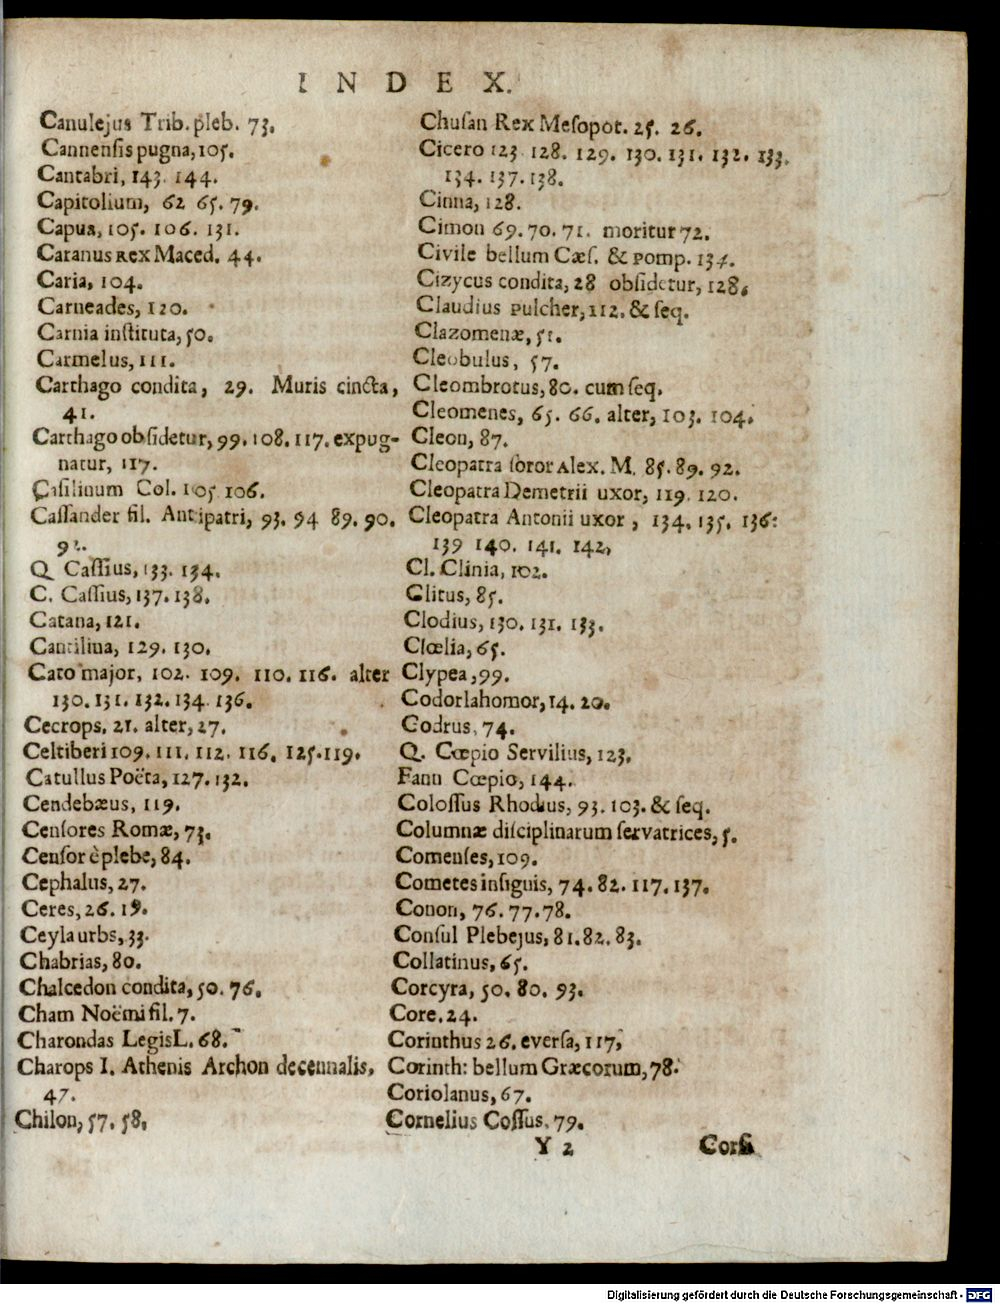 INDEX.
Canulejus Trib. pleb. 73.
Cannenſis pugna, 105.
Cantabri, 143. 144.
Capitolium, 62 65. 79.
Capua, 105. 106. 131.
Caranus Rex Maced. 44.
Caria, 104.
Carneades, 120.
Carnia inſtituta, 50.
Carmelus, 111.
Carthago condita, 29. Muris cincta,
41.
Carthago obſidetur, 99. 108. 117. expug-
natur, 117.
Caſilinum Col. 105 106.
Caſſander fil. Antipatri, 93. 94 89. 90.
92.
Q Caſſius, 133. 134.
C. Caſſius, 137. 138.
Catana, 121.
Cantilina, 129. 130.
Cato major, 102. 109. 110. 116. alter
130. 131. 132. 134. 136.
Cecrops. 21. alter, 27.
Celtiberi 109. 111. 112. 116. 125. 119.
Catullus Poëta, 127. 132.
Cendebæus, 119.
Cenſores Romæ, 73.
Cenſor è plebe, 84.
Cephalus, 27.
Ceres, 26. 19.
Ceyla urbs, 33.
Chabrias, 80.
Chalcedon condita, 50. 76.
Cham Noëmi fil. 7.
Charondas LegisL. 68.
Charops I. Athenis Archon decennalis,
47.
Chilon, 57. 58.
Chuſan Rex Meſopot. 25. 26.
Cicero 123 128. 129. 130. 131. 132. 133.
134. 137. 138.
Cinna, 128.
Cimon 69. 70. 71. moritur 72.
Civile bellum Cæſ. & Pomp. 134.
Cizycus condita, 28 obſidetur, 128.
Claudius Pulcher, 112. & ſeq.
Clazomenæ, 51.
Cleobulus, 57.
Cleombrotus, 80. cum ſeq.
Cleomenes, 65. 66. alter, 103. 104.
Cleon, 87.
Cleopatra ſoror Alex. M. 85. 89. 92.
Cleopatra Demetrii uxor, 119. 120.
Cleopatra Antonii uxor, 134. 135. 136:
139 140. 141. 142,
Cl. Clinia, 102.
Clitus, 85.
Clodius, 130. 131. 133.
Clœlia, 65.
Clypea, 99.
Codorlahomor, 14. 20.
Codrus, 74.
Q. Cœpio Servilius, 123.
Fann Cœpio, 144.
Coloſſus Rhodius, 93. 103. & ſeq.
Columnæ diſciplinarum ſervatrices, 5.
Comenſes, 109.
Cometes inſignis, 74. 82. 117. 137.
Conon, 76. 77. 78.
Conſul Plebejus, 81. 82. 83.
Collatinus, 65.
Corcyra, 50. 80. 93.
Core. 24.
Corinthus 26. everſa, 117,
Corinth: bellum Græcorum, 78.
Coriolanus, 67.
Cornelius Coſſus, 79.
Y 2 Corſi
Digitalisierung gefördert durch die Deutsche Forschungsgemeinschaft - DFG